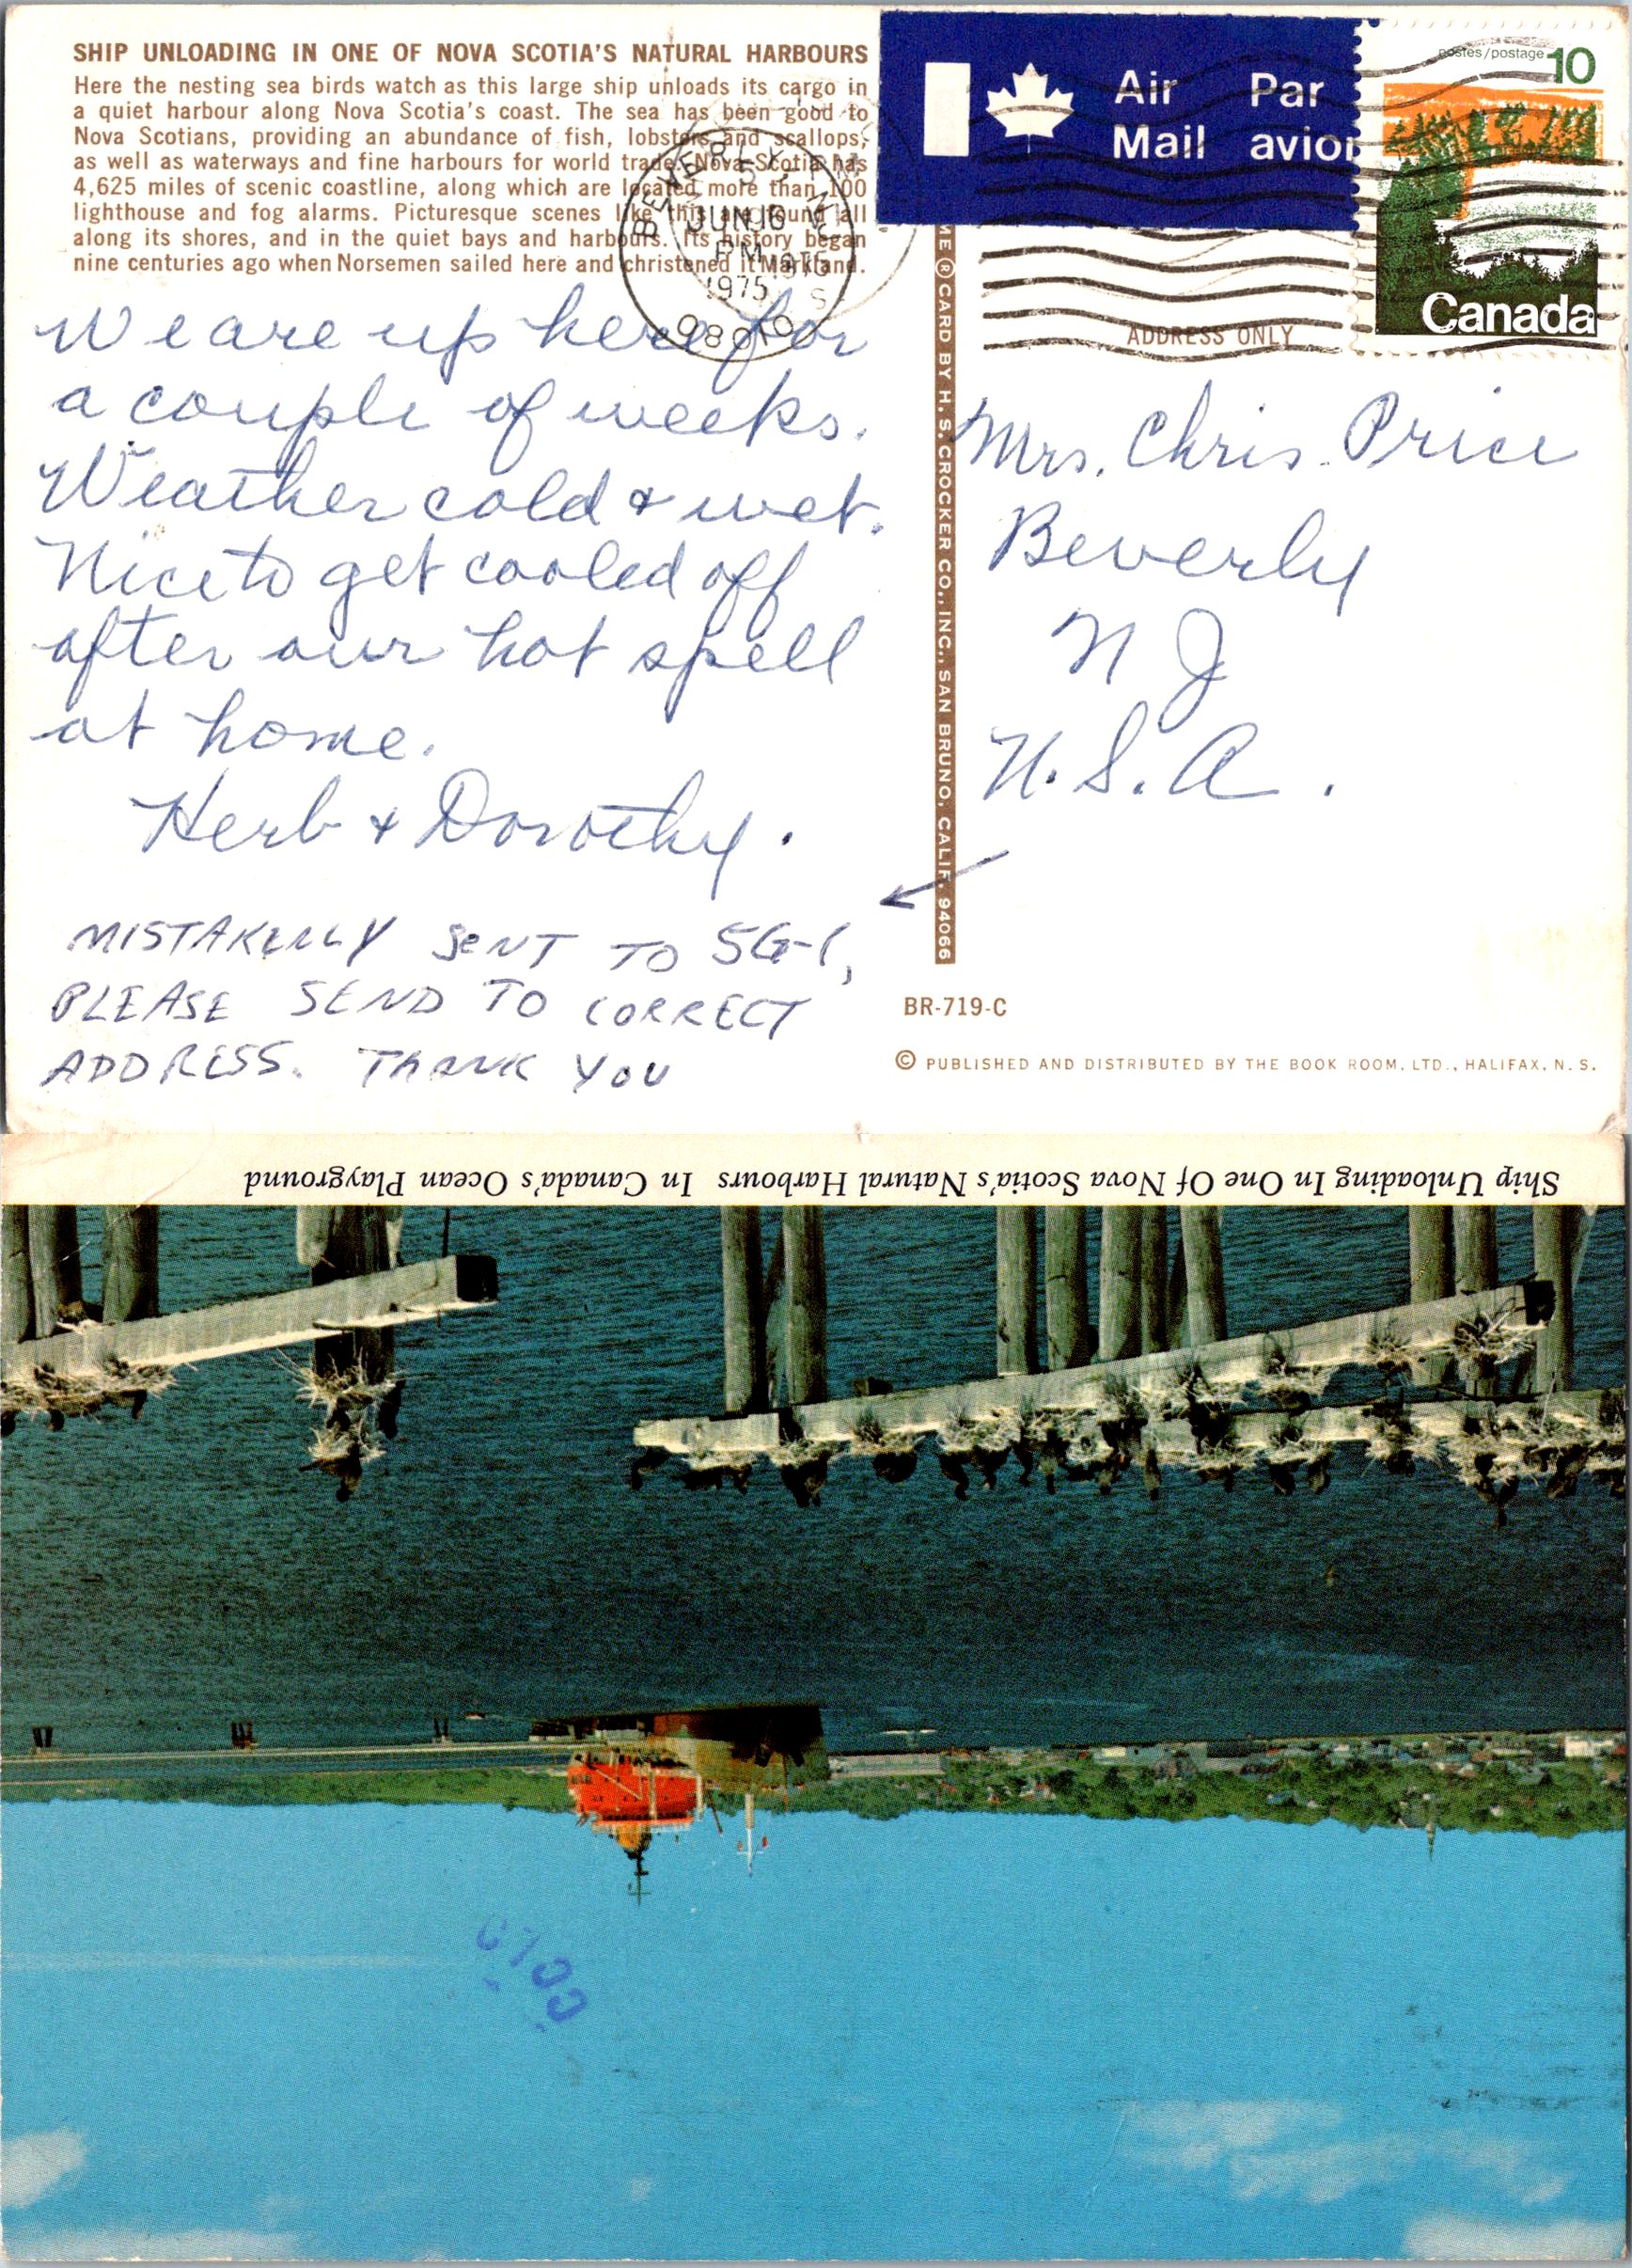 SHIP UNLOADING IN ONE OF NOVA SCOTIA'S NATURAL HARBOURS
Here the nesting sea birds watch as this large ship unloads its cargo in
a quiet harbour along Nova Scotia's coast. The sea has been good to
Nova Scotians, providing an abundance of fish, lobsters and scallops,
as well as waterways and fine harbours for world trade. Nova Scotia has
4,625 miles of scenic coastline, along which are located more than 100
lighthouse and fog alarms. Picturesque scenes like this are found all
along its shores, and in the quiet bays and harbours. Its history began
nine centuries ago when Norsemen sailed here and christened it Markland.
Air Par
Mail avion
postes/postage 10
Canada
BEVERLY, NJ
JUN 16
PM
1975
08010
ADDRESS ONLY
We are up here for
a couple of weeks.
Weather cold & wet.
Nice to get cooled off
after our hot spell
at home.
Herb & Dorothy.
MISTAKENLY SENT TO 5G-1,
PLEASE SEND TO CORRECT
ADDRESS. THANK YOU
ME ® CARD BY H. S. CROCKER CO., INC., SAN BRUNO, CALIF. 94066
Mrs. Chris. Price
Beverly
N J
U.S.A.
BR-719-C
© PUBLISHED AND DISTRIBUTED BY THE BOOK ROOM, LTD., HALIFAX, N. S.
Ship Unloading In One Of Nova Scotia's Natural Harbours In Canada's Ocean Playground